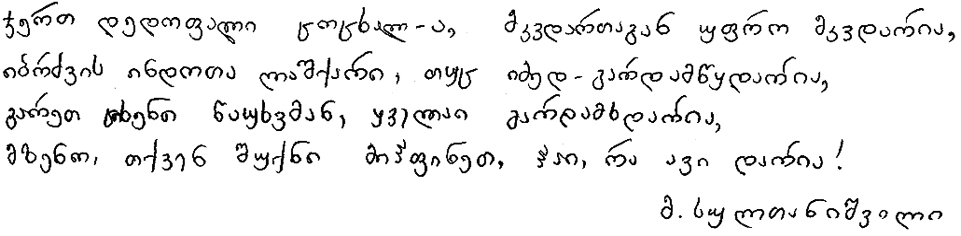 ჯერთ დედოფალი ცოცხალ-ა, მკვდართაგან უფრო მკვდარია,
იბრძვის ინდოთა ლაშქარი, თუც იმედ-გარდამწყდარია,
გარეთ ცხენი ნაუხვმან, ყველაი გარდამხდარია,
მზენო, თქვენ შუქნი მოჰფინეთ, ჰაი, რა ავი დარია!
მ. სულთანიშვილი